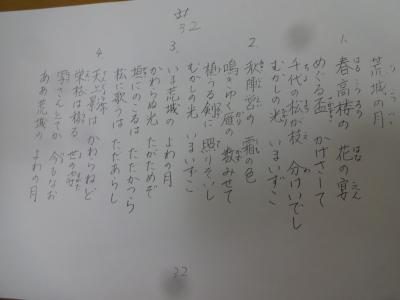 32
荒城の月
1. 春高楼の 花の宴
めぐる盃 かげさして
千代の松が枝 分けいでし
むかしの光 いまいずこ
2. 秋陣営の 霜の色
鳴きゆく雁の 数みせて
植うる剣に 照りそいし
むかしの光 いまいずこ
3. いま荒城の よわの月
かわらぬ光 たがためぞ
垣にのこるは ただかつら
松に歌うは ただあらし
4. 天上影は かわらねど
栄枯は移る 世の姿
写さんとてか 今もなお
ああ荒城の よわの月
32